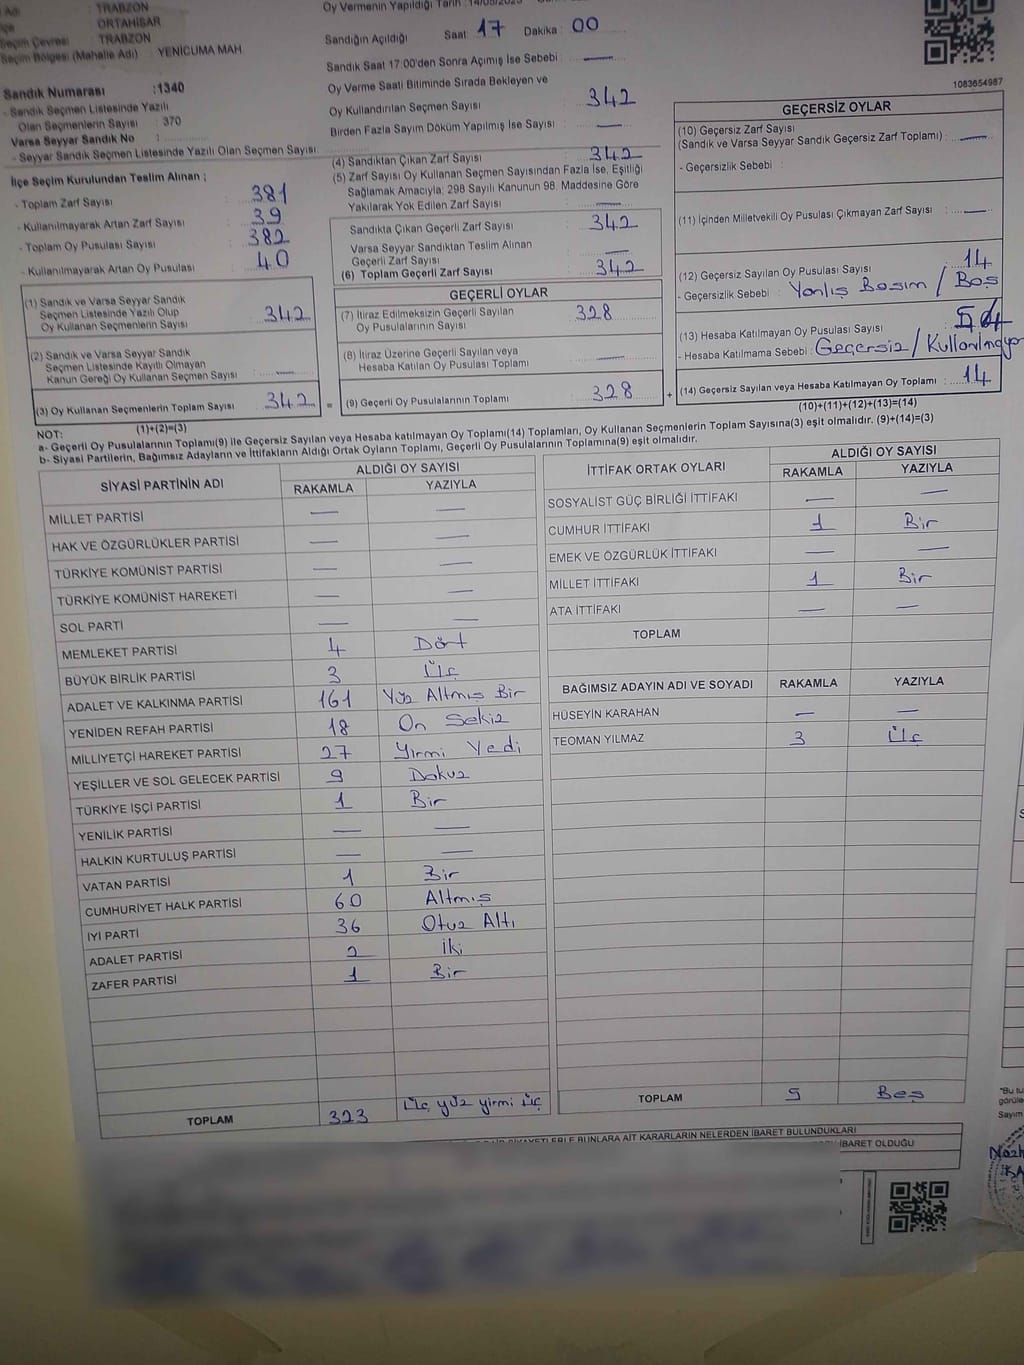 Adı : TRABZON
ORTAHİSAR
Seçim Çevresi : TRABZON
Seçim Bölgesi (Mahalle Adı) : YENİCUMA MAH
Sandık Numarası : 1340
- Sandık Seçmen Listesinde Yazılı
Olan Seçmenlerin Sayısı : 370
Varsa Seyyar Sandık No :
- Seyyar Sandık Seçmen Listesinde Yazılı Olan Seçmen Sayısı:
İlçe Seçim Kurulundan Teslim Alınan ;
- Toplam Zarf Sayısı : 381
- Kullanılmayarak Artan Zarf Sayısı : 39
- Toplam Oy Pusulası Sayısı : 382
- Kullanılmayarak Artan Oy Pusulası : 40
(1) Sandık ve Varsa Seyyar Sandık
Seçmen Listesinde Yazılı Olup
Oy Kullanan Seçmenlerin Sayısı : 342
(2) Sandık ve Varsa Seyyar Sandık
Seçmen Listesinde Kayıtlı Olmayan
Kanun Gereği Oy Kullanan Seçmen Sayısı : —
(3) Oy Kullanan Seçmenlerin Toplam Sayısı : 342 =
(1)+(2)=(3)
Oy Vermenin Yapıldığı Tarih : 14/05/2023
Sandığın Açıldığı Saat: 17 Dakika : 00
Sandık Saat 17:00'den Sonra Açılmış İse Sebebi : —
Oy Verme Saati Bitiminde Sırada Bekleyen ve
Oy Kullandırılan Seçmen Sayısı : 342
Birden Fazla Sayım Döküm Yapılmış İse Sayısı : —
(4) Sandıktan Çıkan Zarf Sayısı : 342
(5) Zarf Sayısı Oy Kullanan Seçmen Sayısından Fazla İse, Eşitliği
Sağlamak Amacıyla; 298 Sayılı Kanunun 98. Maddesine Göre
Yakılarak Yok Edilen Zarf Sayısı : —
Sandıkta Çıkan Geçerli Zarf Sayısı : 342
Varsa Seyyar Sandıktan Teslim Alınan
Geçerli Zarf Sayısı : —
(6) Toplam Geçerli Zarf Sayısı : 342
GEÇERLİ OYLAR
(7) İtiraz Edilmeksizin Geçerli Sayılan
Oy Pusulalarının Sayısı : 328
(8) İtiraz Üzerine Geçerli Sayılan veya
Hesaba Katılan Oy Pusulası Toplamı : —
(9) Geçerli Oy Pusulalarının Toplamı : 328 +
1083654987
GEÇERSİZ OYLAR
(10) Geçersiz Zarf Sayısı
(Sandık ve Varsa Seyyar Sandık Geçersiz Zarf Toplamı) : —
- Geçersizlik Sebebi :
(11) İçinden Milletvekili Oy Pusulası Çıkmayan Zarf Sayısı : —
(12) Geçersiz Sayılan Oy Pusulası Sayısı : 14
- Geçersizlik Sebebi : Yanlış Basım / Boş
(13) Hesaba Katılmayan Oy Pusulası Sayısı :
- Hesaba Katılmama Sebebi : Geçersiz / Kullanılmıyor
(14) Geçersiz Sayılan veya Hesaba Katılmayan Oy Toplamı : 14
(10)+(11)+(12)+(13)=(14)
NOT:
a- Geçerli Oy Pusulalarının Toplamı(9) ile Geçersiz Sayılan veya Hesaba katılmayan Oy Toplamı(14) Toplamları, Oy Kullanan Seçmenlerin Toplam Sayısına(3) eşit olmalıdır. (9)+(14)=(3)
b- Siyasi Partilerin, Bağımsız Adayların ve İttifakların Aldığı Ortak Oyların Toplamı, Geçerli Oy Pusulalarının Toplamına(9) eşit olmalıdır.
SİYASİ PARTİNİN ADI ALDIĞI OY SAYISI
RAKAMLA YAZIYLA
MİLLET PARTİSİ — —
HAK VE ÖZGÜRLÜKLER PARTİSİ — —
TÜRKİYE KOMÜNİST PARTİSİ — —
TÜRKİYE KOMÜNİST HAREKETİ — —
SOL PARTİ — —
MEMLEKET PARTİSİ 4 Dört
BÜYÜK BİRLİK PARTİSİ 3 Üç
ADALET VE KALKINMA PARTİSİ 161 Yüz Altmış Bir
YENİDEN REFAH PARTİSİ 18 On Sekiz
MİLLİYETÇİ HAREKET PARTİSİ 27 Yirmi Yedi
YEŞİLLER VE SOL GELECEK PARTİSİ 9 Dokuz
TÜRKİYE İŞÇİ PARTİSİ 1 Bir
YENİLİK PARTİSİ — —
HALKIN KURTULUŞ PARTİSİ — —
VATAN PARTİSİ 1 Bir
CUMHURİYET HALK PARTİSİ 60 Altmış
İYİ PARTİ 36 Otuz Altı
ADALET PARTİSİ 2 İki
ZAFER PARTİSİ 1 Bir
TOPLAM 323 Üç yüz yirmi üç
İTTİFAK ORTAK OYLARI ALDIĞI OY SAYISI
RAKAMLA YAZIYLA
SOSYALİST GÜÇ BİRLİĞİ İTTİFAKI — —
CUMHUR İTTİFAKI 1 Bir
EMEK VE ÖZGÜRLÜK İTTİFAKI — —
MİLLET İTTİFAKI 1 Bir
ATA İTTİFAKI — —
TOPLAM
BAĞIMSIZ ADAYIN ADI VE SOYADI RAKAMLA YAZIYLA
HÜSEYİN KARAHAN — —
TEOMAN YILMAZ 3 Üç
TOPLAM 5 Beş
BUNLARA AİT KARARLARIN NELERDEN İBARET BULUNDUKLARI
İBARET OLDUĞU
"Bu tu
görüle
Sayım